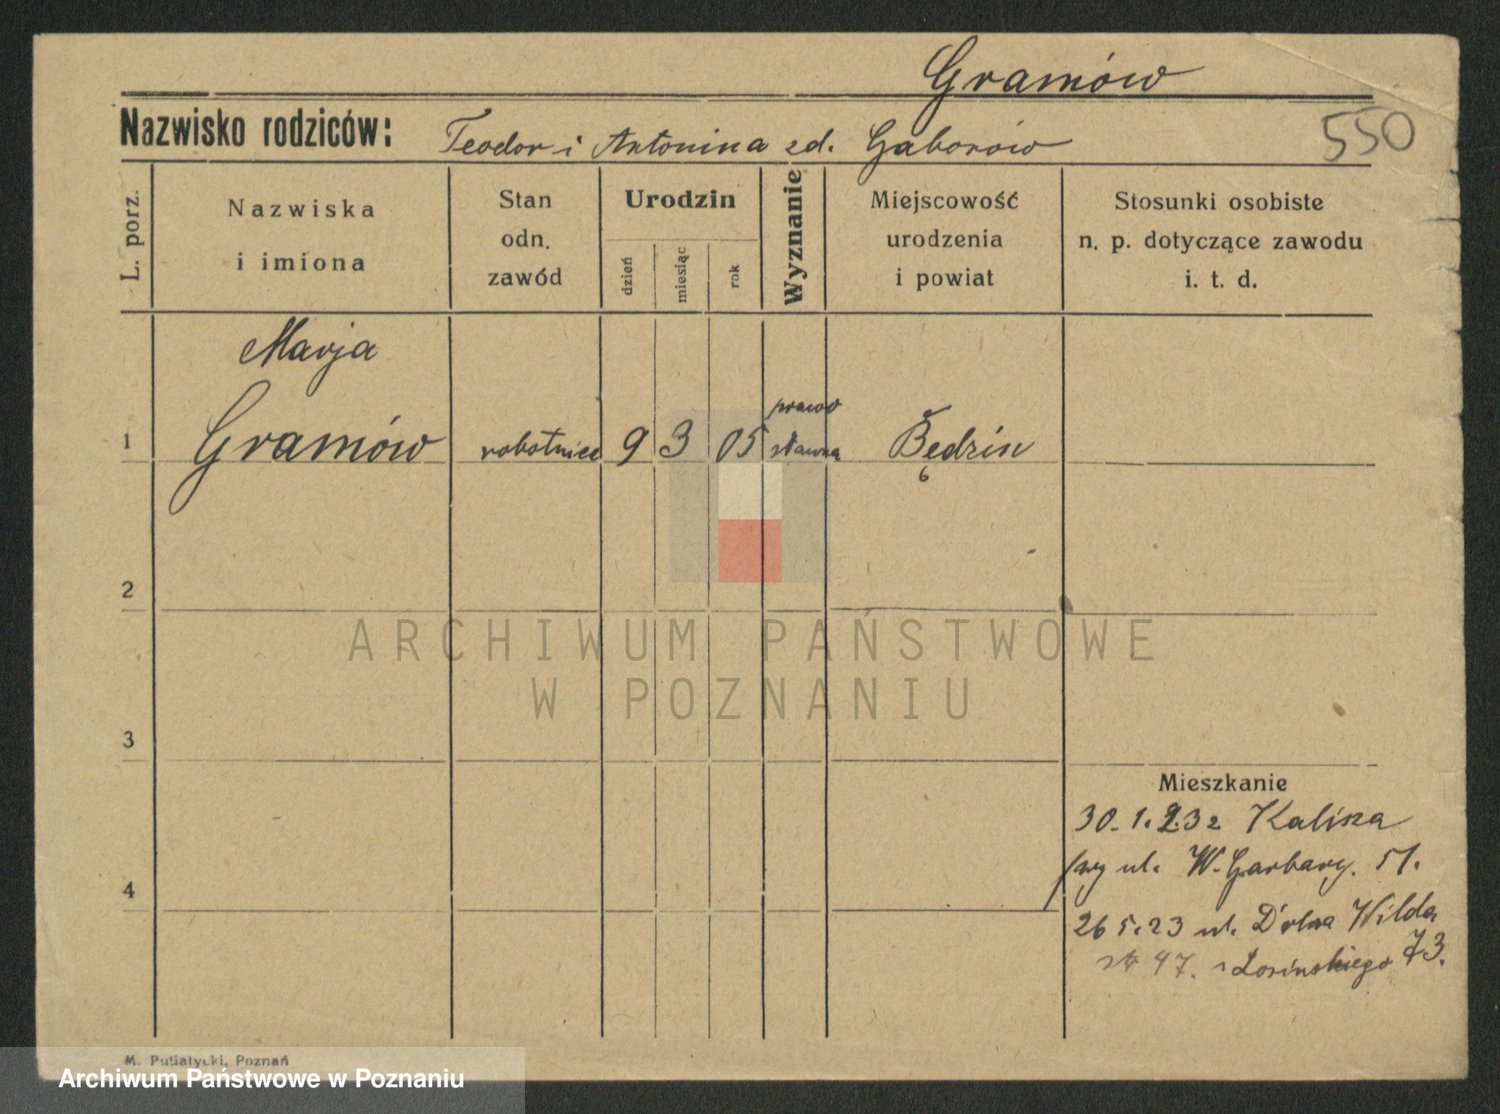 Gramów
Nazwisko rodziców: Teodor i Antonina zd. Gaborów
550
L. porz.
Nazwiska
i imiona
Stan
odn.
zawód
Urodzin
dzień
miesiąc
rok
Wyznanie
Miejscowość
urodzenia
i powiat
Stosunki osobiste
n. p. dotyczące zawodu
i. t. d.
Marja
1 Gramów robotnica 9 3 05 prawosławna Będzin
2
3
4
ARCHIWUM PAŃSTWOWE
W POZNANIU
Mieszkanie
30. 1. 23 z Kalisza
ul. W. Garbary. 51.
26 5. 23 ul. Dolna Wilda
47. 73.
M. Putiatycki, Poznań
Archiwum Państwowe w Poznaniu